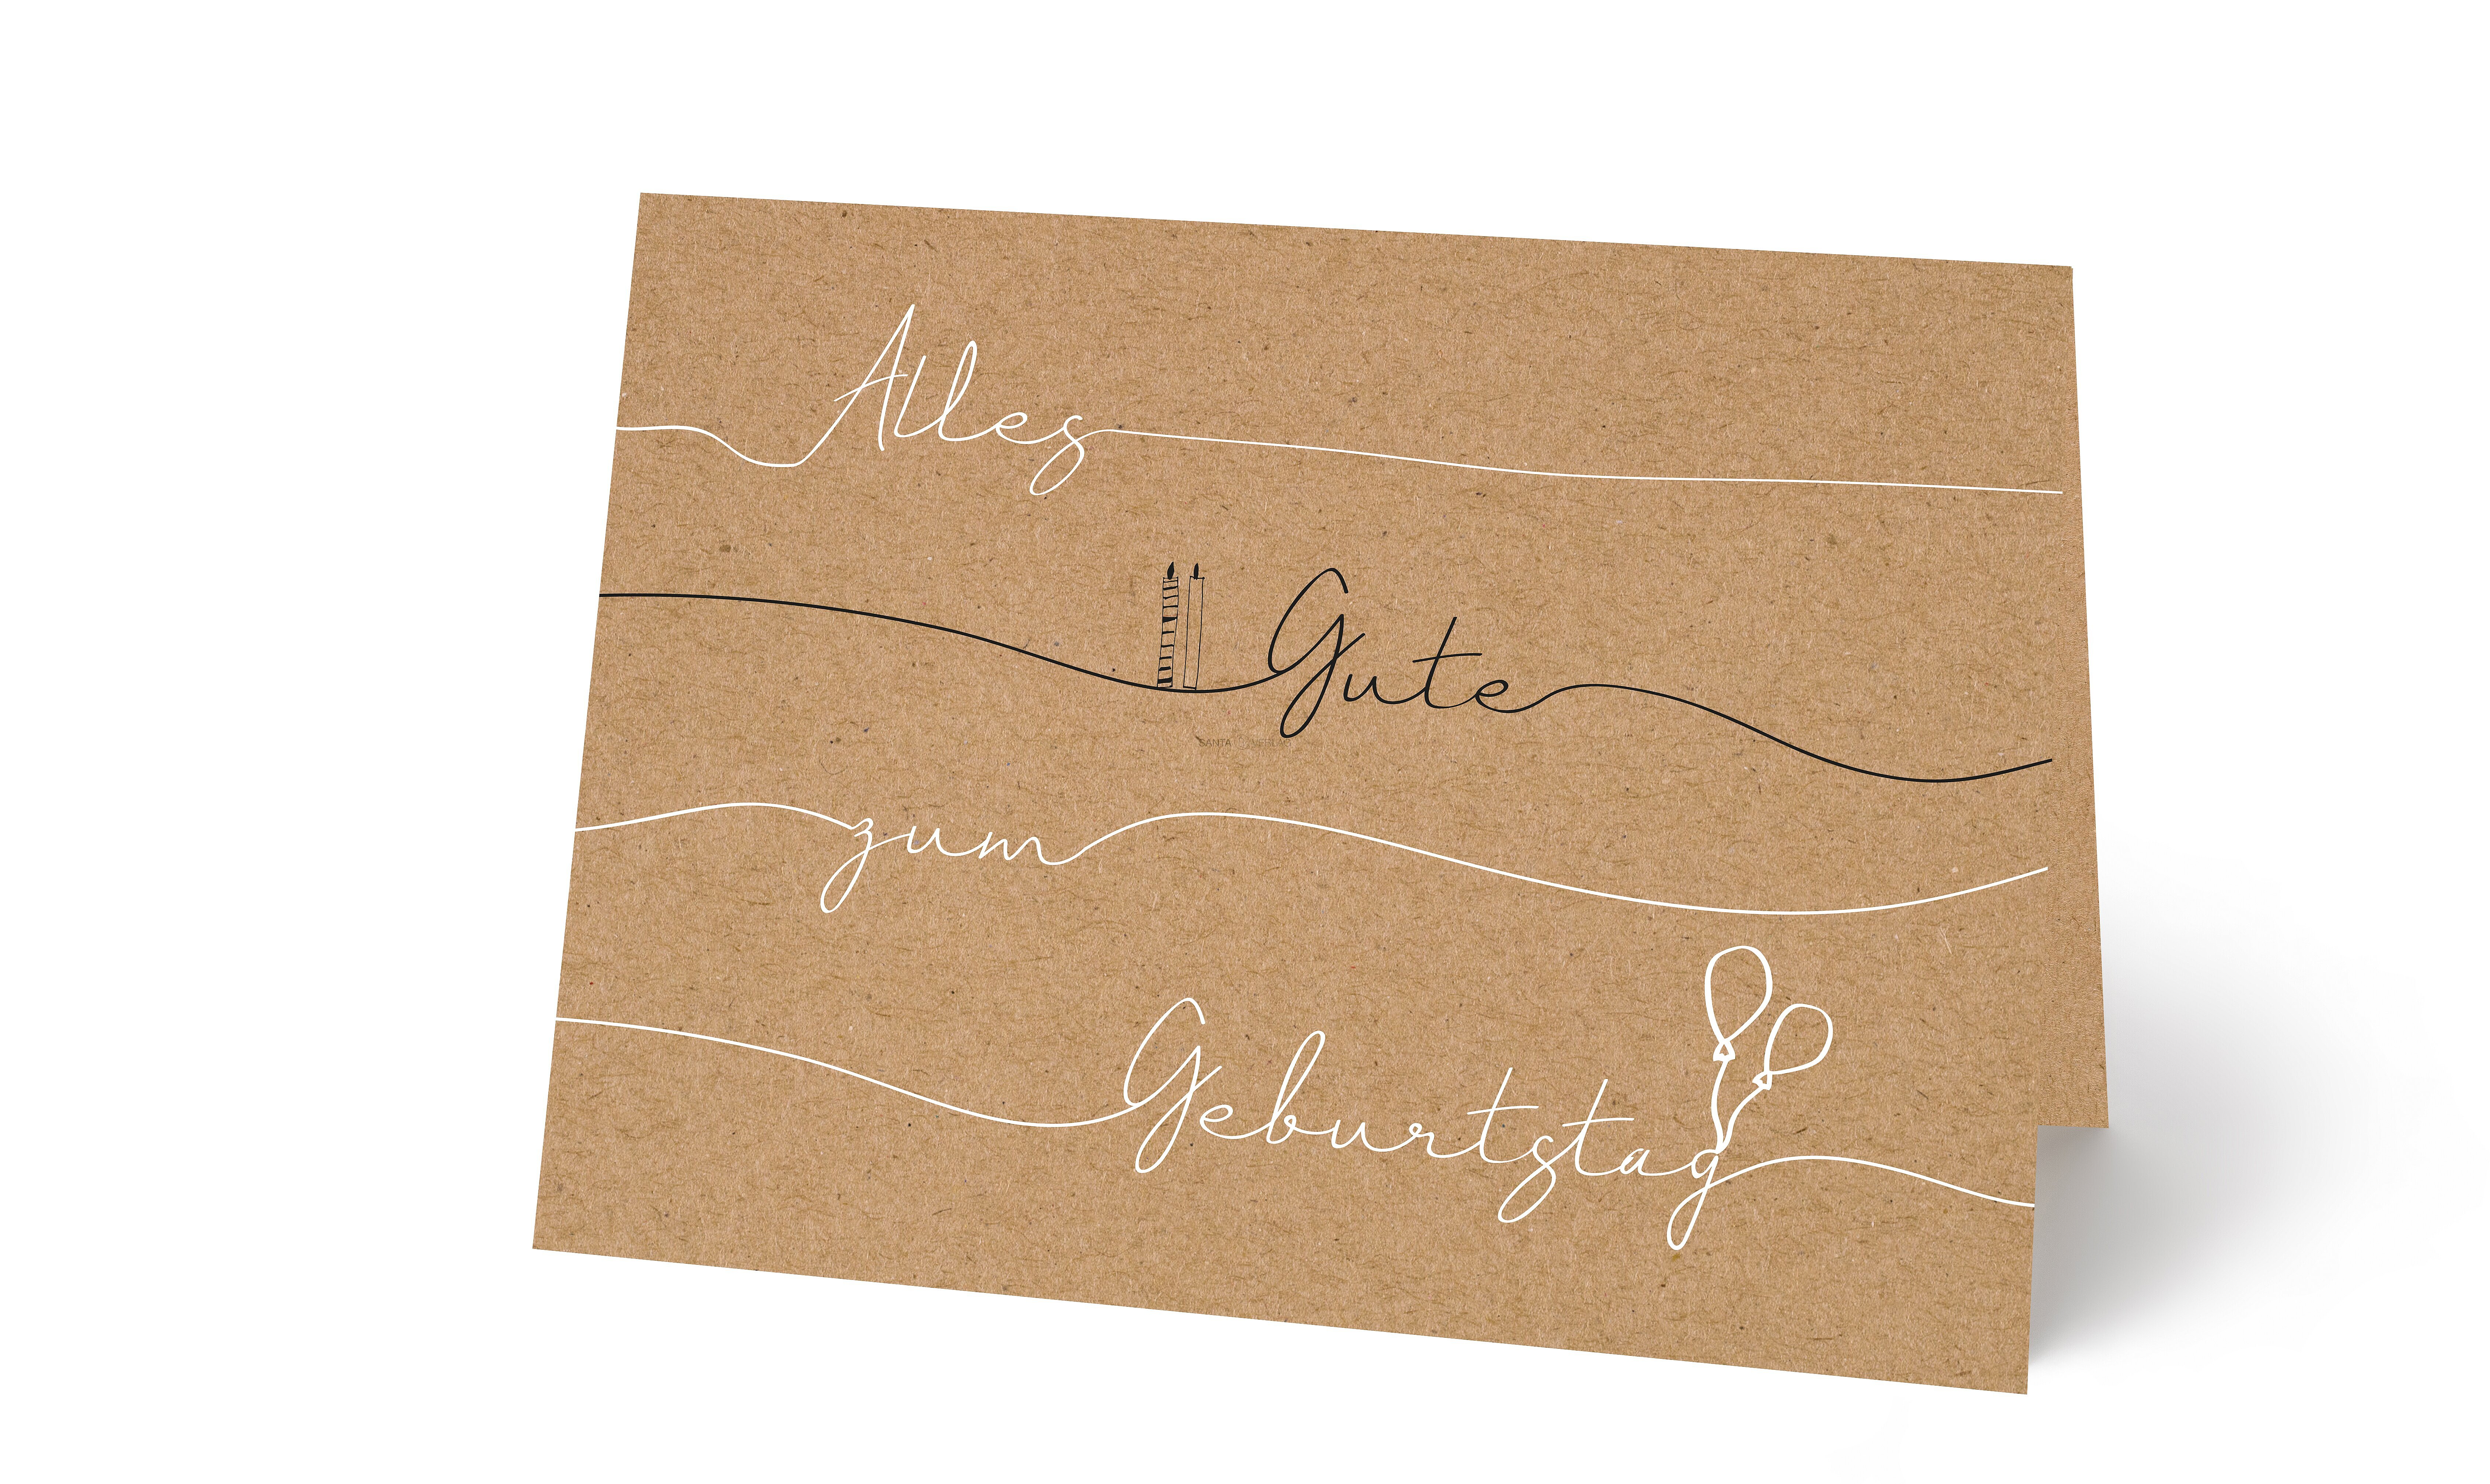 Alles
Gute
SANTA
zum
Geburtstag